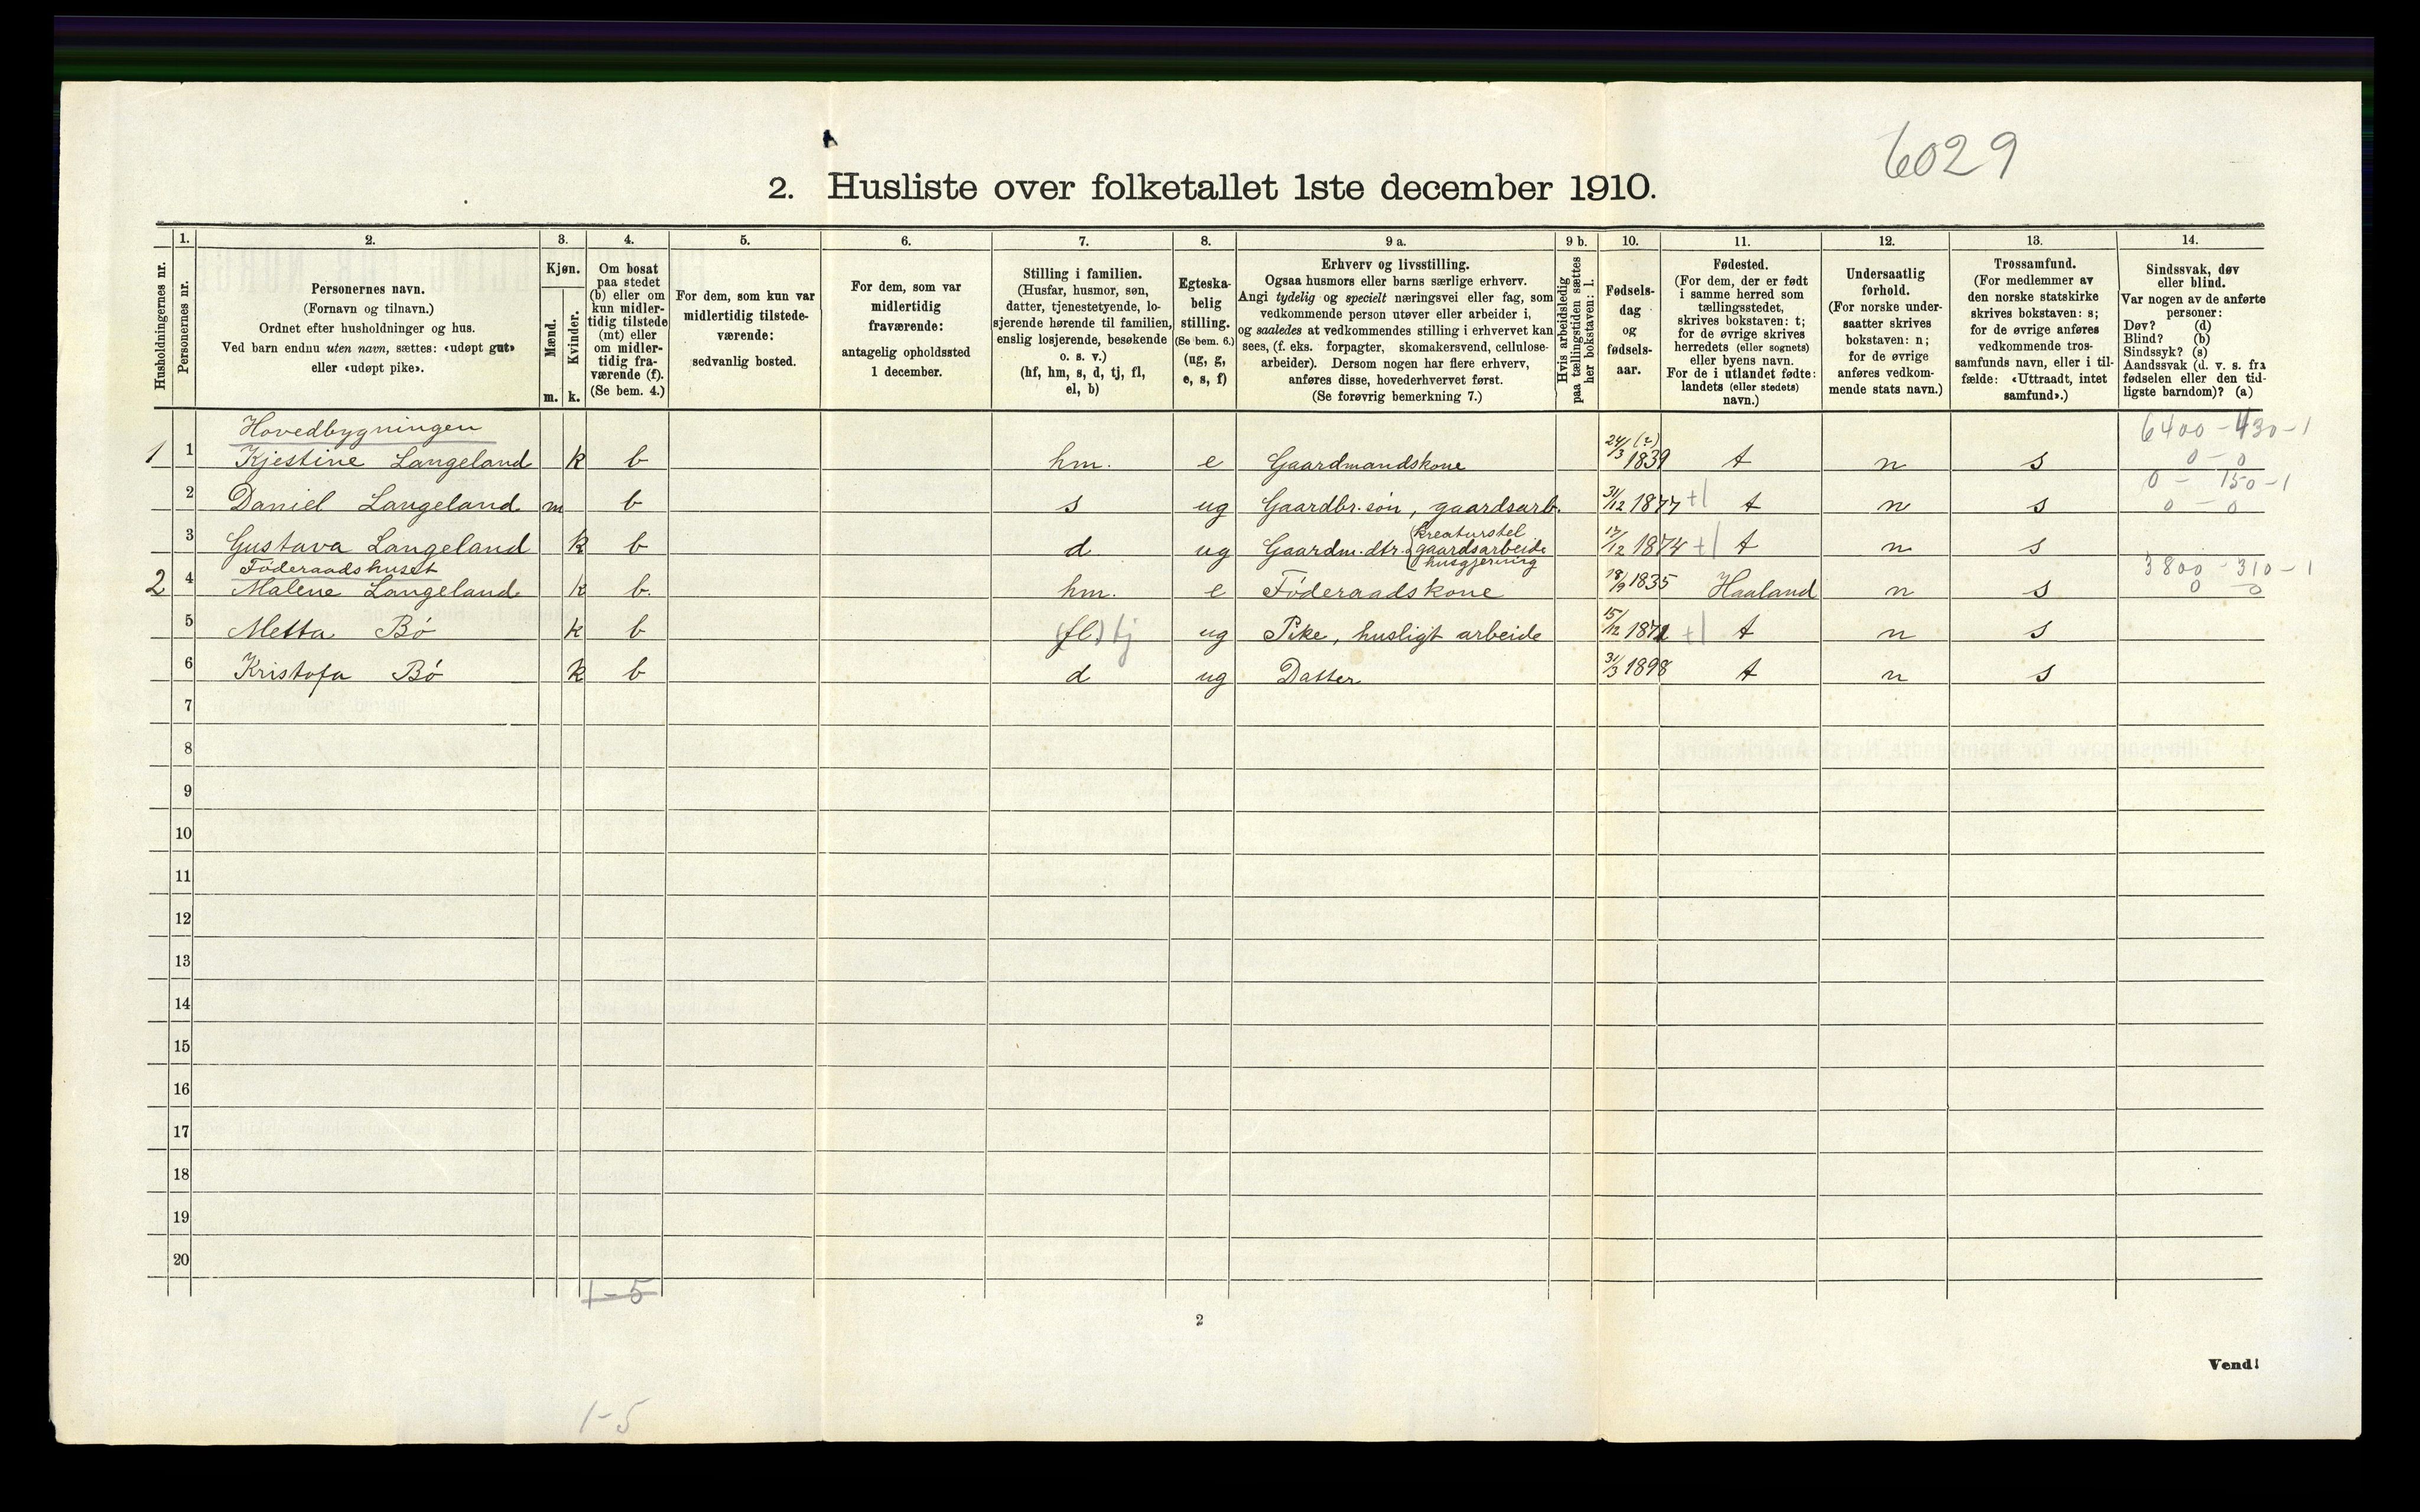 6029
2. Husliste over folketallet 1ste december 1910.
Husholdningernes nr.
1.
Personernes nr.
2.
Personernes navn.
(Fornavn og tilnavn.)
Ordnet efter husholdninger og hus.
Ved barn endnu uten navn, sættes: «udøpt gut»
eller «udøpt pike».
3.
Kjøn.
Mænd.
Kvinder.
m. k.
4.
Om bosat
paa stedet
(b) eller om
kun midler-
tidig tilstede
(mt) eller
om midler-
tidig fra-
værende (f).
(Se bem. 4.)
5.
For dem, som kun var
midlertidig tilstede-
værende:
sedvanlig bosted.
6.
For dem, som var
midlertidig
fraværende:
antagelig opholdssted
1 december.
7.
Stilling i familien.
(Husfar, husmor, søn,
datter, tjenestetyende, lo-
sjerende hørende til familien,
enslig losjerende, besøkende
o. s. v.)
(hf, hm, s, d, tj, fl,
el, b)
8.
Egteska-
belig
stilling.
(Se bem. 6.)
(ug, g,
e, s, f)
9 a.
Erhverv og livsstilling.
Ogsaa husmors eller barns særlige erhverv.
Angi tydelig og specielt næringsvei eller fag, som
vedkommende person utøver eller arbeider i,
og saaledes at vedkommendes stilling i erhvervet kan
sees, (f. eks. forpagter, skomakersvend, cellulose-
arbeider). Dersom nogen har flere erhverv,
anføres disse, hovederhvervet først.
(Se forøvrig bemerkning 7.)
9 b.
Hvis arbeidsledig
paa tællingstiden sættes
her bokstaven: l.
10.
Fødsels-
dag
og
fødsels-
aar.
11.
Fødested.
(For dem, der er født
i samme herred som
tællingsstedet,
skrives bokstaven: t;
for de øvrige skrives
herredets (eller sognets)
eller byens navn.
For de i utlandet fødte:
landets (eller stedets)
navn.)
12.
Undersaatlig
forhold.
(For norske under-
saatter skrives
bokstaven: n;
for de øvrige
anføres vedkom-
mende stats navn.)
13.
Trossamfund.
(For medlemmer av
den norske statskirke
skrives bokstaven: s;
for de øvrige anføres
vedkommende tros-
samfunds navn, eller i til-
fælde: «Uttraadt, intet
samfund».)
14.
Sindssvak, døv
eller blind.
Var nogen av de anførte
personer:
Døv? (d)
Blind? (b)
Sindssyk? (s)
Aandssvak (d. v. s. fra
fødselen eller den tid-
ligste barndom)? (a)
Hovedbygningen
6400 - 430 - 1
1 1 Kjestine Langeland k b hm. e Gaardmandskone 24/3 (?) 1839 t n s 0 - 0
0 - 150 - 1
2 Daniel Langeland m b s ug Gaardbr. søn, gaardsarb. 31/12 1877 +1 t n s 0 - 0
3 Gustava Langeland k b d ug Gaardm. dtr. kreaturstel gaardsarbeide husgjerning 17/12 1874 +1 t n s
Föderaadshuset
3800 - 310 - 1
2 4 Malene Langeland k b. hm. e Föderaadskone 18/9 1835 Haaland n s 0 - 0
5 Metta Bö k b (fl) tj ug Pike, husligt arbeide 15/12 1871 +1 t n s
6 Kristofa Bö k b d ug Datter 31/3 1898 t n s
7
8
9
10
11
12
13
14
15
16
17
18
19
20
1-5
2
Vend!
1-5